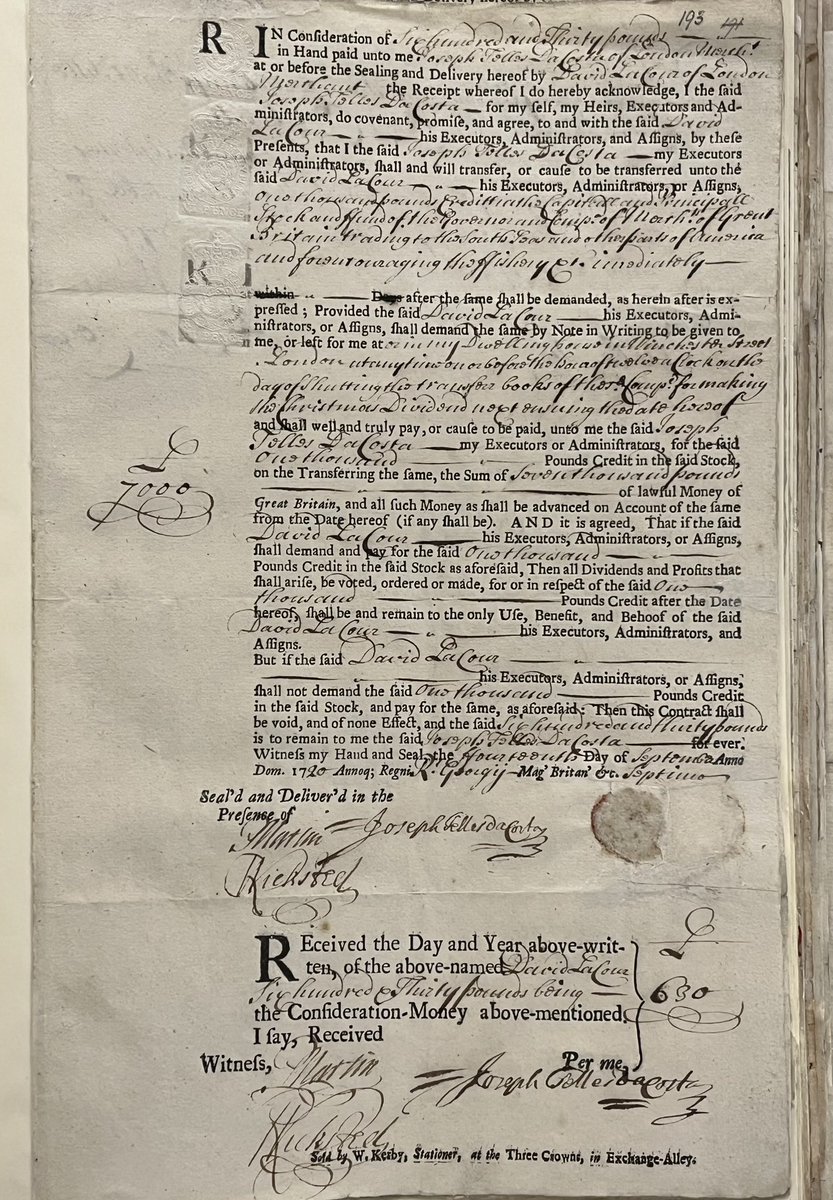 193
R
IN Consideration of Six hundred and Thirty pounds
in Hand paid unto me Joseph Telles DaCosta of London Merch.t
at or before the Sealing and Delivery hereof by David LaCour of London
Merchant the Receipt whereof I do hereby acknowledge, I the said
Joseph Telles DaCosta for my self, my Heirs, Executors and Ad-
ministrators, do covenant, promise, and agree, to and with the said David
LaCour his Executors, Administrators, and Assigns, by these
Presents, that I the said Joseph Telles DaCosta my Executors
or Administrators, shall and will transfer, or cause to be transferred unto the
said David LaCour his Executors, Administrators, or Assigns,
One thousand pounds Credit in the Capitall and Principall
Stock and ffund of the Governor and Comp.a of Merch.ts of Great
Britain trading to the South Seas and other parts of America
and for encouraging the ffishery &c. imediately
K
within Days after the same shall be demanded, as herein after is ex-
pressed; Provided the said David LaCour his Executors, Admi-
nistrators, or Assigns, shall demand the same by Note in Writing to be given to
me, or left for me at or in my Dwelling house in Winchester Street
London at any time on or before the hour of twelve a Clock on the
day of Shutting the transfer books of the s.d Comp.a for making
the Christmas Dividend next ensuing the date hereof
and shall well and truly pay, or cause to be paid, unto me the said Joseph
Telles DaCosta my Executors or Administrators, for the said
One thousand Pounds Credit in the said Stock,
on the Transferring the same, the Sum of Seven thousand pounds
£
7000
of lawful Money of
Great Britain, and all such Money as shall be advanced on Account of the same
from the Date hereof (if any shall be). AND it is agreed, That if the said
David LaCour his Executors, Administrators, or Assigns,
shall demand and pay for the said One thousand
Pounds Credit in the said Stock as aforesaid, Then all Dividends and Profits that
shall arise, be voted, ordered or made, for or in respect of the said One
thousand Pounds Credit after the Date
hereof, shall be and remain to the only Use, Benefit, and Behoof of the said
David LaCour his Executors, Administrators, and
Assigns.
But if the said David LaCour
his Executors, Administrators, or Assigns,
shall not demand the said One thousand Pounds Credit
in the said Stock, and pay for the same, as aforesaid: Then this Contract shall
be void, and of none Effect, and the said Six hundred and thirty pounds
is to remain to me the said Joseph Telles DaCosta for ever.
Witness my Hand and Seal, the ffourteenth Day of Septem.br Anno
Dom. 1720 Annoq; Regni R.s Georgij Mag' Britan' &c. Septimo
Seal'd and Deliver'd in the
Presence of
Martin Joseph Telles da Costa
Kicksted
REceived the Day and Year above-writ-
ten, of the above-named David LaCour
Six hundred & Thirty pounds being
the Consideration-Money above-mentioned.
I say, Received
£
630
Witness, Martin Per me,
Joseph Telles da Costa
Kicksted
Sold by W. Kerby, Stationer, at the Three Crowns, in Exchange-Alley.